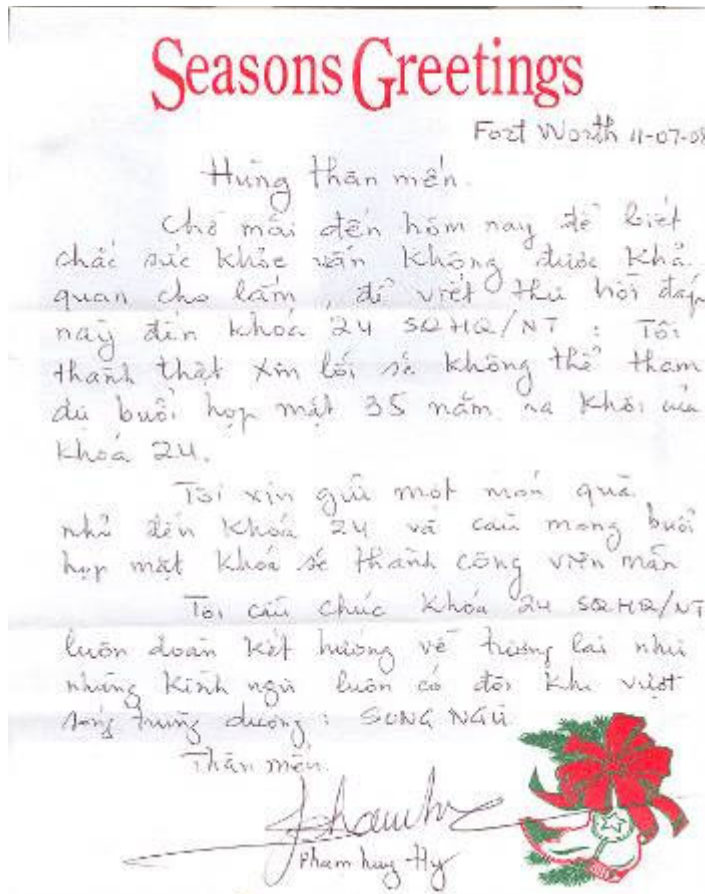 Seasons Greetings
Fort Worth 11-07-08
Hùng thân mến.
Chờ mãi đến hôm nay để biết
chắc sức khỏe vẫn không được khả
quan cho lắm, để viết thư hồi đáp
này đến khóa 24 SQHQ/NT : Tôi
thành thật xin lỗi sẽ không thể tham
dự buổi họp mặt 35 năm ra khơi của
khóa 24.
Tôi xin gửi một món quà
nhỏ đến khóa 24 và cầu mong buổi
họp mặt khóa sẽ thành công viên mãn
Tôi cầu chúc khóa 24 SQHQ/NT
luôn đoàn kết hướng về tương lai như
những kình ngư luôn có đôi khi vượt
sóng trùng dương : SONG NGƯ
Thân mến.
Pham huy Hy